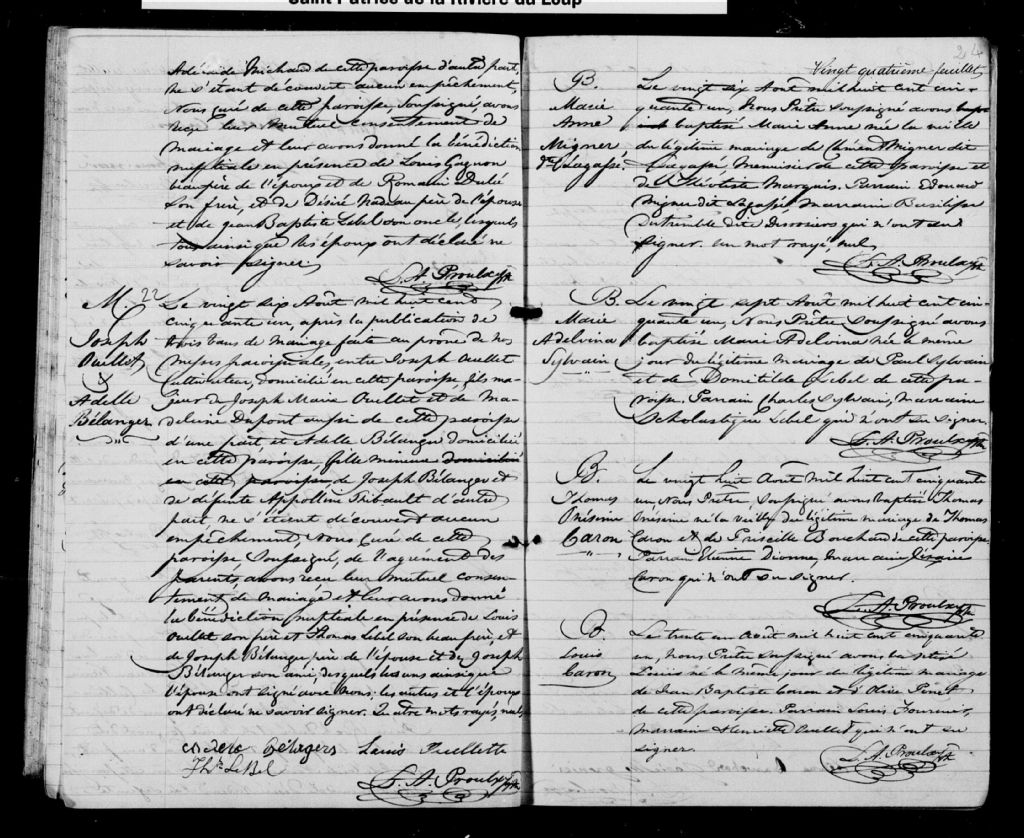 Saint Patrice de la Rivière du Loup
Adéraide Michaud de cette paroisse d'autre part,
ne s'étant découvert aucun empêchement,
Nous curé de cette paroisse, soussigné, avons
reçu leur mutuel consentement de
mariage et leur avons donné la bénédiction
nuptiale en présence de Louis Gagnon
beaupère de l'époux et de Romain Dubé
son frère, et de Désiré Nadeau père de l'épouse
et de Jean Baptiste Lebel son oncle, lesquels
tous ainsi que les époux ont déclaré ne
savoir signer.
L. A. Proulx Ptre
M. 22
Joseph
Ouellet
&
Adelle
Bélanger
Le vingt six Août mil huit cent
cinquante un, après la publication de
trois bans de mariage faite au prône de nos
messes paroissiales, entre Joseph Ouellet
Cultivateur, domicilié en cette paroisse, fils ma-
jeur de Joseph Marie Ouellet et de Ma-
deleine Dupont aussi de cette paroisse
d'une part et Adelle Bélanger domiciliée
en cette paroisse, fille mineure domiciliée
en cette paroisse, de Joseph Bélanger et
de défunte Appolline Thibault d'autre
part, ne s'étant découvert aucun
empêchement, Nous Curé de cette
paroisse, soussigné, de l'agrément des
parents, avons reçu leur mutuel consen-
tement de mariage et leur avons donné
la bénédiction nuptiale en présence de Louis
Ouellet son père et Thomas Lebel son beau père, et
de Joseph Bélanger père de l'épouse et de Joseph
Bélanger son ami, desquels les uns ainsi que
l'épouse ont signé avec nous; les autres et l'époux
ont déclaré ne savoir signer. Quatre mots rayés, nuls
Belagers Louis Ouellette
Ths LeBel
L. A. Proulx Ptre
24
Vingt quatrième feuillet
B.
Marie
Anne
Migner
dte Lagassé.
Le vingt six Août mil huit cent cin-
quante un, Nous Prêtre soussigné avons
baptisé Marie Anne née la veille
du légitime mariage de Clément Migner dit
Lagassé, Menuisier de cette paroisse et
de Marquis. Parrain Edouard
Migner dit Lagassé Marraine Basilisse
Dutremble dite Desrosiers qui n'ont su
signer. Un mot rayé, nul.
L. A. Proulx Ptre
B.
Marie
Adelvina
Sylvain
Le vingt sept Août mil huit cent cin-
quante un, Nous Prêtre soussigné avons
baptisé Marie Adelvina née le même
jour du légitime mariage de Paul Sylvain
et de Domitilde Lebel de cette pa-
roisse. Parrain Charles Sylvain, Marraine
Scholastique Lebel qui n'ont su signer.
L. A. Proulx Ptre
B.
Thomas
Onésime
Caron
Le vingt huit Août mil huit cent cinquante
un, Nous Prêtre, soussigné avons baptisé Thomas
Onésime né la veille du légitime mariage de Thomas
Caron et de Priscille Bouchard de cette paroisse.
Parrain Etienne Dionne, Marraine
Caron qui n'ont su signer.
L. A. Proulx Ptre
B.
Louis
Caron
Le trente un Août mil huit cent cinquante
un, Nous Prêtre soussigné avons baptisé
Louis né le même jour du légitime mariage
de Jean Baptiste Caron et d'Olive
de cette paroisse. Parrain Louis Fournier,
Marraine Henriette Ouellet qui n'ont su
signer.
L. A. Proulx Ptre